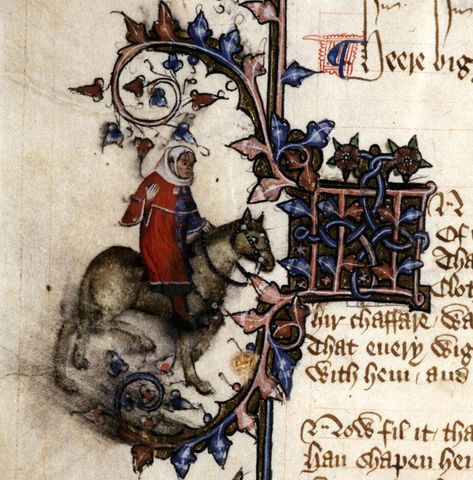 ¶ Heere big
IN
Of
Tha
Clot
hir chaffare / wa
That euery wig
With hem / and
Now fil it / tha
Han shapen hem